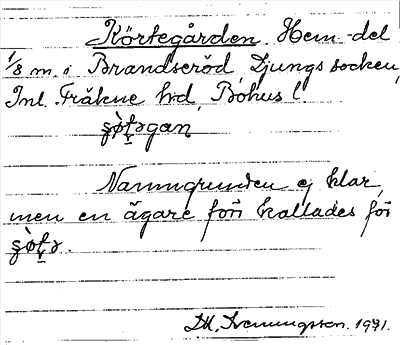 Körtegården. Hem.-del
1/8 m. i Brandseröd, Ljungs socken,
Inl. Fräkne hd, Bohus l.
Namngrunden ej klar,
men en ägare förr kallades för
D.H. Svenungsson. 1931.